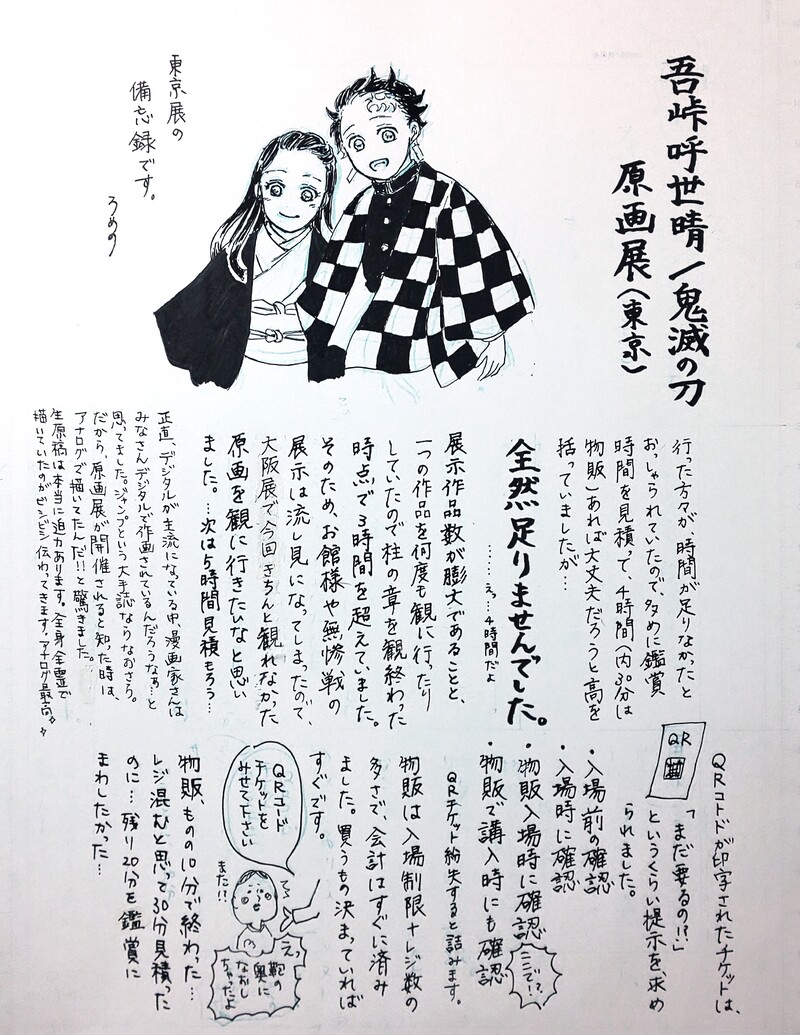 吾峠呼世晴/鬼滅の刀
原画展(東京)
東京展の
備忘録です。
うめの
行った方々が「時間が足りなかった」と
おっしゃられていたので、多めに鑑賞
時間を見積って、4時間(内30分は
物販)あれば大丈夫だろうと高を
括っていましたが…
全然足りませんでした。
……えっ…4時間だよ
展示作品数が膨大であることと、
一つの作品を何度も観に行ったり
していたので柱の章を観終わった
時点で3時間を超えていました。
そのため、お館様や無惨戦の
展示は流し見になってしまったので、
大阪展で今回きちんと観れなかった
原画を観に行きたいなと思い
ました。…次は5時間見積もろう…
正直、デジタルが主流になっている中、漫画家さんは
みなさんデジタルで作画されているんだろうなぁ…と
思ってました。ジャンプという大手誌ならなおさら。
だから、原画展が開催されると知った時は、
アナログで描いてたんだ!!と驚きました。
生原稿は本当に迫力あります。全身全霊で
描いていたのがビシビシ伝わってきます。アナログ最高。
QRコードが印字されたチケットは、
「まだ要るの!?」
というくらい提示を、求め
られました。
QR
・入場前の確認
・入場時に確認
・物販入場時に確認
・物販で購入時にも確認
ここで!?
QRチケット紛失すると詰みます。
物販は入場制限+レジ数の
多さで、会計はすぐに済み
ました。買うもの決まっていれば
すぐです。
QRコード
チケットを
みせて下さい
また!!
えっ
鞄の
奥に
なおし
ちゃったよ
物販、ものの10分で終わった…
レジ混むと思って30分見積った
のに…残り20分を鑑賞に
まわしたかった…